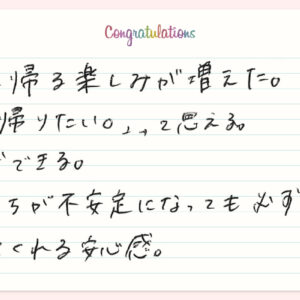 Congratulations
帰る楽しみが増えた。
帰りたい。、、と思える。
できる。
ちが不安定になっても必ず
くれる安心感。